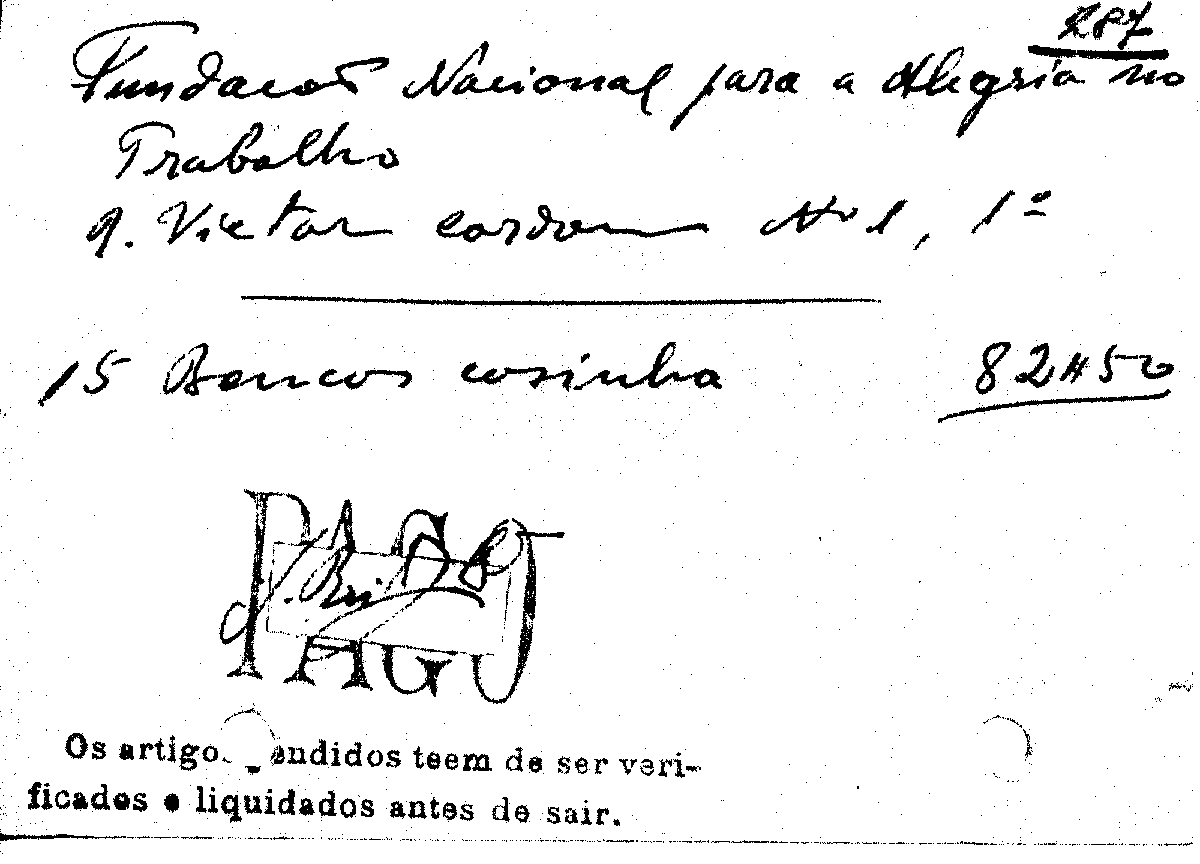 287
Fundacão Nacional para a Alegria no
Trabalho
R. Victor cordon Nº 1, 1º
15 Bancos cosinha 82$50
PAGO
Os artigos endidos teem de ser veri-
ficados e liquidados antes de sair.